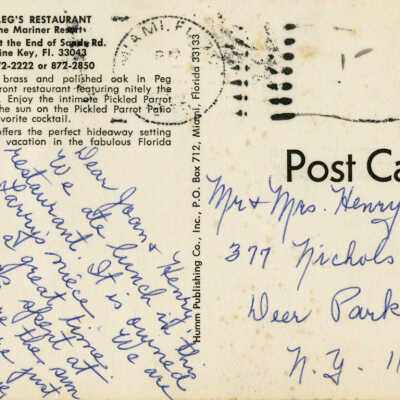 EG'S RESTAURANT
ne Mariner Resort
t the End of Sands Rd.
ine Key, Fl. 33043
72-2222 or 872-2850
brass and polished oak in Peg
ront restaurant featuring nitely the
. Enjoy the intimate Pickled Parrot
he sun on the Pickled Parrot Patio
avorite cocktail.
offers the perfect hideaway setting
vacation in the fabulous Florida
MIAMI, F
PM
Humm Publishing Co., Inc., P.O. Box 712, Miami, Florida 33133
Post Ca
Dear Joan & Henry,
We ate lunch in this
restaurant. It is owned
Harry's niece. We are
a great time.
spent at
the sun
just
Mr & Mrs. Henry
377 Nichols
Deer Park
N.Y. 11